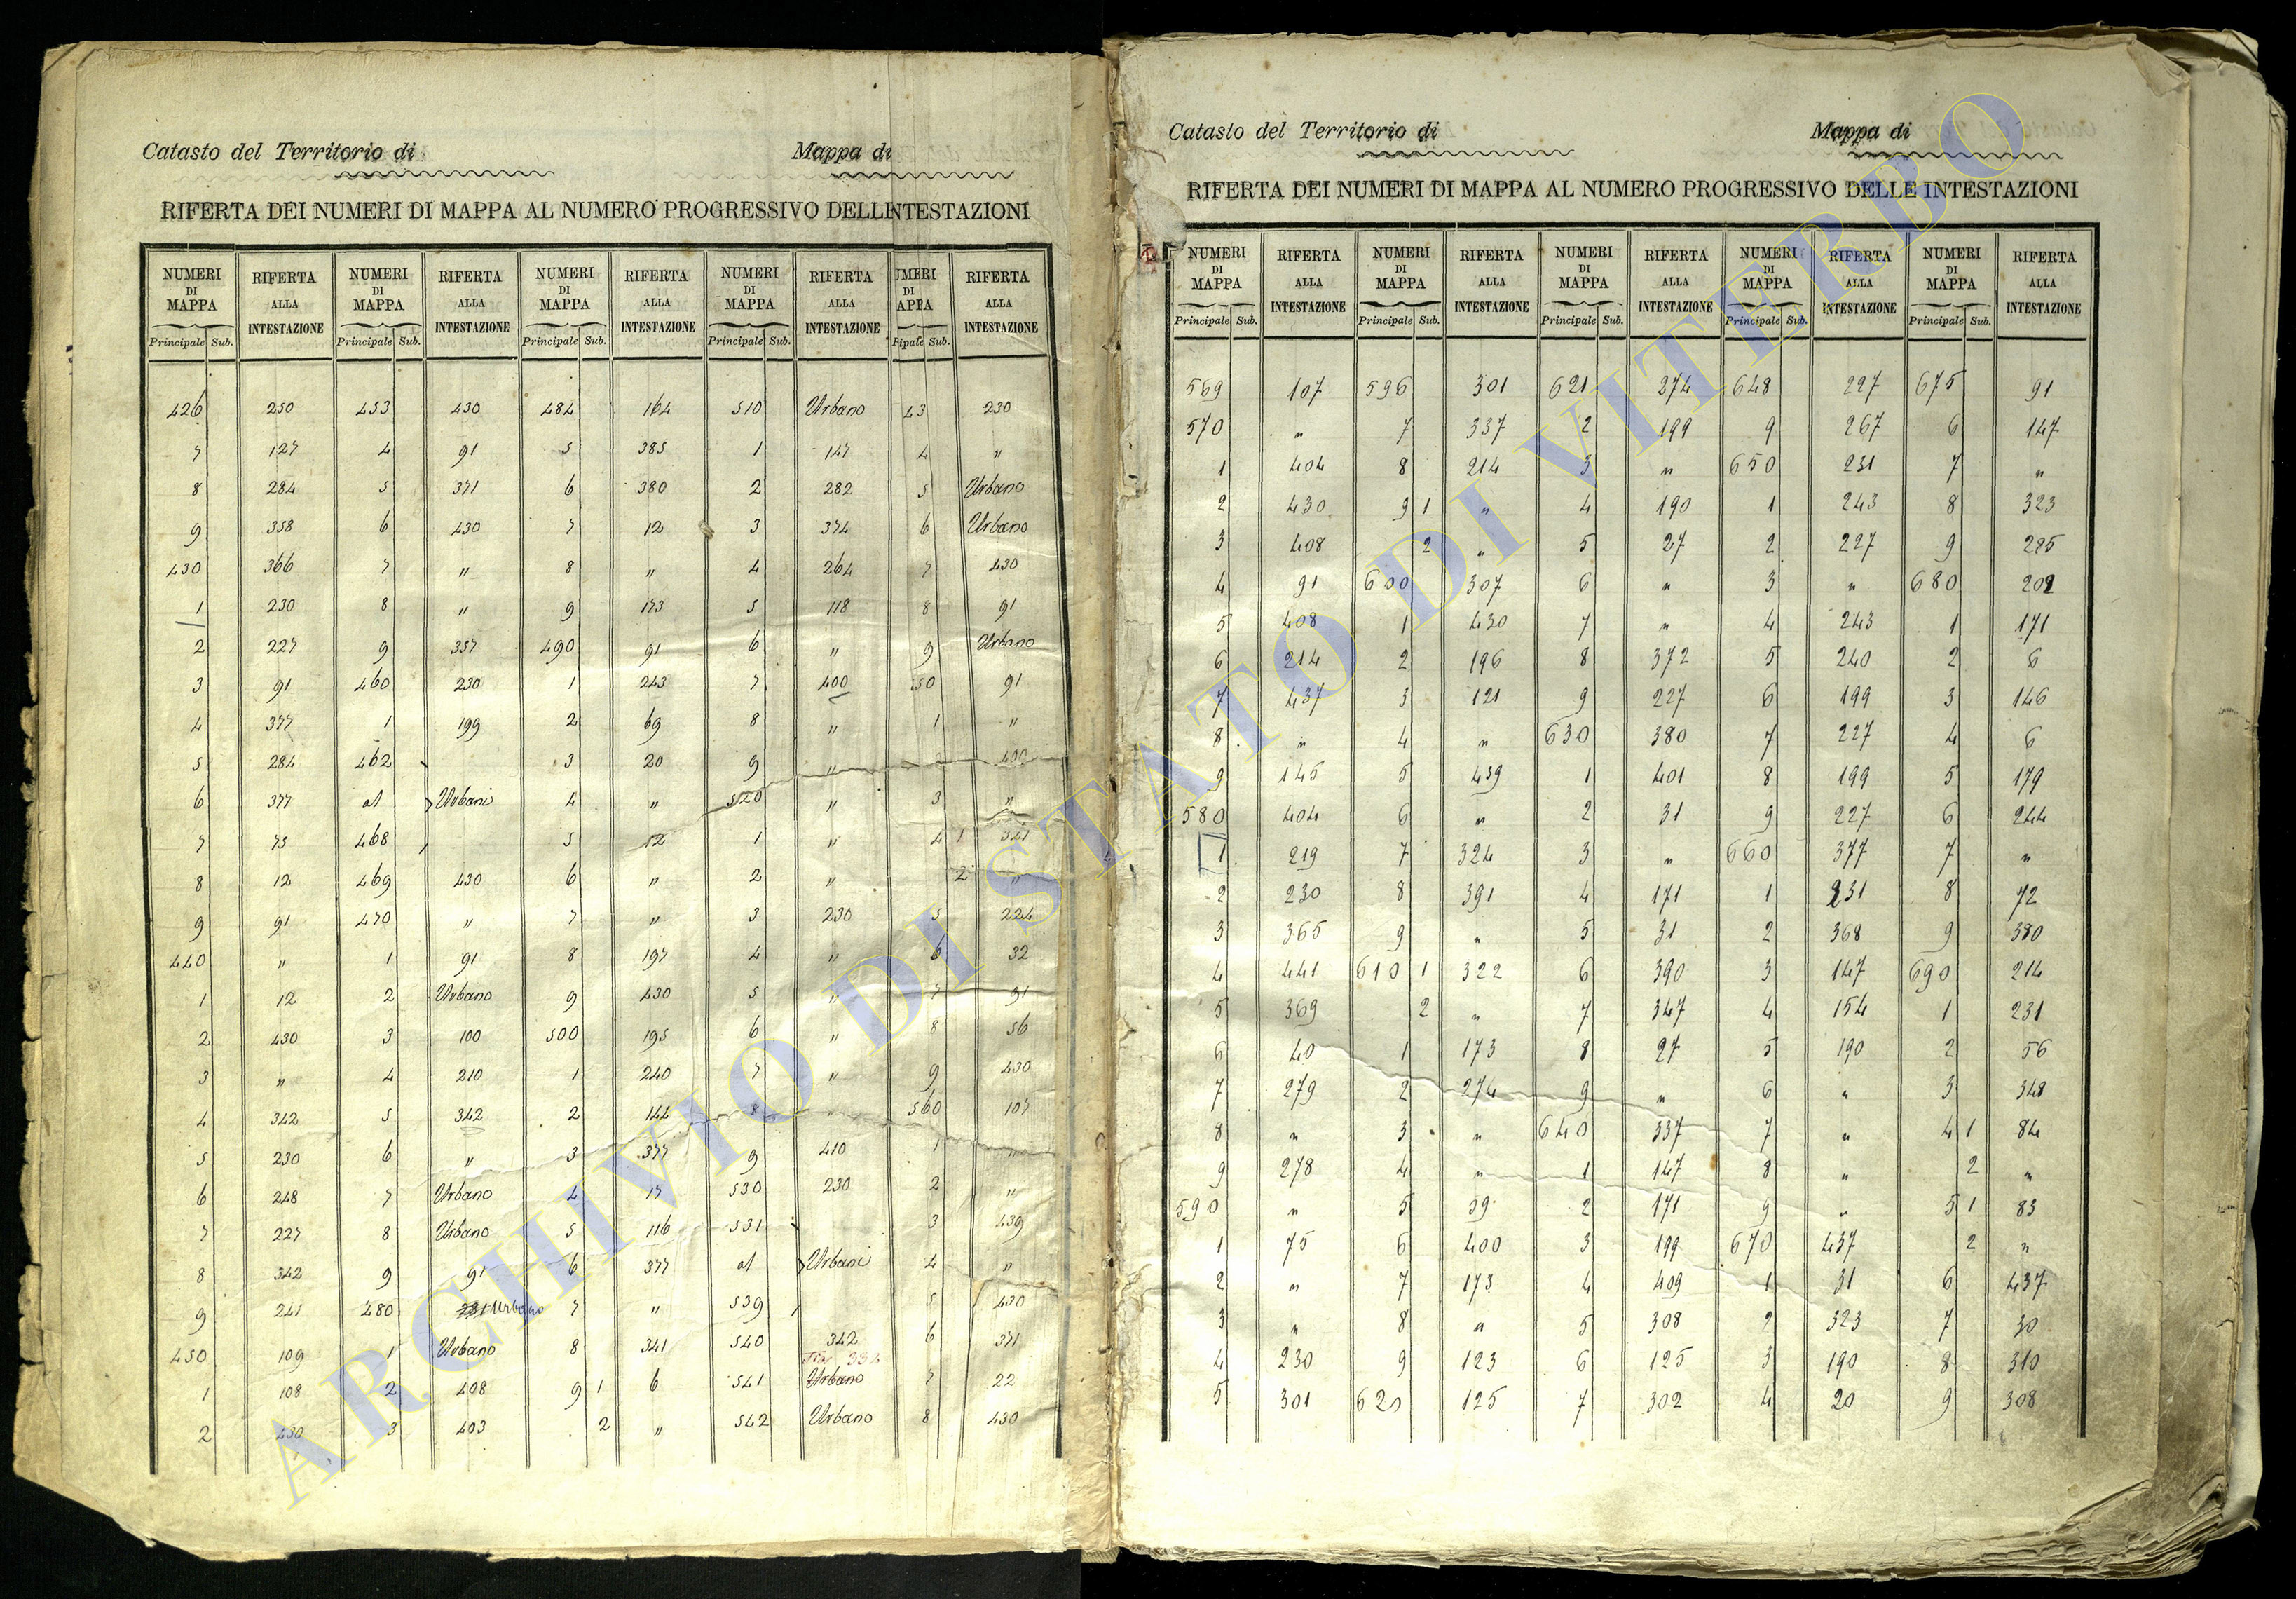 Catasto del Territorio di
Mappa di
RIFERTA DEI NUMERI DI MAPPA AL NUMERO PROGRESSIVO DELL INTESTAZIONI
NUMERI DI MAPPA RIFERTA ALLA INTESTAZIONE NUMERI DI MAPPA RIFERTA ALLA INTESTAZIONE NUMERI DI MAPPA RIFERTA ALLA INTESTAZIONE NUMERI DI MAPPA RIFERTA ALLA INTESTAZIONE UMERI DI APPA RIFERTA ALLA INTESTAZIONE
Principale Sub. Principale Sub. Principale Sub. Principale Sub. ipale Sub.
426 250 453 430 484 164 510 Urbano 43 230
7 127 4 91 5 385 1 147 4 "
8 284 5 371 6 380 2 282 5 Urbano
9 358 6 430 7 12 3 374 6 Urbano
430 366 7 " 8 " 4 264 7 430
1 230 8 " 9 173 5 118 8 91
2 227 9 357 490 91 6 " 9 Urbano
3 91 460 230 1 243 7 400 50 91
4 377 1 199 2 69 8 " 1 "
5 284 462 3 20 9 " 400
6 377 al Urbani 4 " 520 " 3 "
7 75 468 5 12 1 " 4 1 341
8 12 469 430 6 " 2 " 2 "
9 91 470 " 7 " 3 230 5 224
440 " 1 91 8 197 4 " 6 32
1 12 2 Urbano 9 430 5 " 7 91
2 430 3 100 500 195 6 " 8 56
3 " 4 210 1 240 7 " 9 430
4 342 5 342 2 144 8 " 560 107
5 230 6 " 3 377 9 410 1 "
6 248 7 Urbano 4 17 530 230 2 "
7 227 8 Urbano 5 116 531 3 439
8 342 9 91 6 377 al Urbani 4 "
9 241 480 231 Urbano 7 " 539 5 430
450 109 1 Urbano 8 341 540 342 6 371
1 108 2 408 9 1 6 541 Urbano 7 22
2 430 3 403 2 " 542 Urbano 8 430
Catasto del Territorio di
Mappa di
RIFERTA DEI NUMERI DI MAPPA AL NUMERO PROGRESSIVO DELLE INTESTAZIONI
NUMERI DI MAPPA RIFERTA ALLA INTESTAZIONE NUMERI DI MAPPA RIFERTA ALLA INTESTAZIONE NUMERI DI MAPPA RIFERTA ALLA INTESTAZIONE NUMERI DI MAPPA RIFERTA ALLA INTESTAZIONE NUMERI DI MAPPA RIFERTA ALLA INTESTAZIONE
Principale Sub. Principale Sub. Principale Sub. Principale Sub. Principale Sub.
569 107 596 301 621 274 648 227 675 91
570 " 7 337 2 199 9 267 6 147
1 404 8 214 3 " 650 231 7 "
2 430 9 1 " 4 190 1 243 8 323
3 408 2 " 5 27 2 227 9 285
4 91 600 307 6 " 3 " 680 202
5 408 1 430 7 " 4 243 1 171
6 214 2 196 8 372 5 240 2 6
7 437 3 121 9 227 6 199 3 146
8 " 4 " 630 380 7 227 4 6
9 145 5 439 1 401 8 199 5 179
580 404 6 " 2 31 9 227 6 244
1 219 7 324 3 " 660 377 7 "
2 230 8 391 4 171 1 231 8 72
3 365 9 " 5 31 2 368 9 380
4 441 610 1 322 6 390 3 147 690 214
5 369 2 " 7 347 4 154 1 231
6 40 1 173 8 27 5 190 2 56
7 279 2 274 9 " 6 " 3 348
8 " 3 " 640 337 7 " 4 1 84
9 278 4 " 1 147 8 " 2 "
590 " 5 39 2 171 9 " 5 1 83
1 75 6 400 3 199 670 437 2 "
2 " 7 173 4 409 1 31 6 437
3 " 8 " 5 308 2 323 7 30
4 230 9 123 6 125 3 190 8 310
5 301 620 125 7 302 4 20 9 308
ARCHIVIO DI STATO DI VITERBO